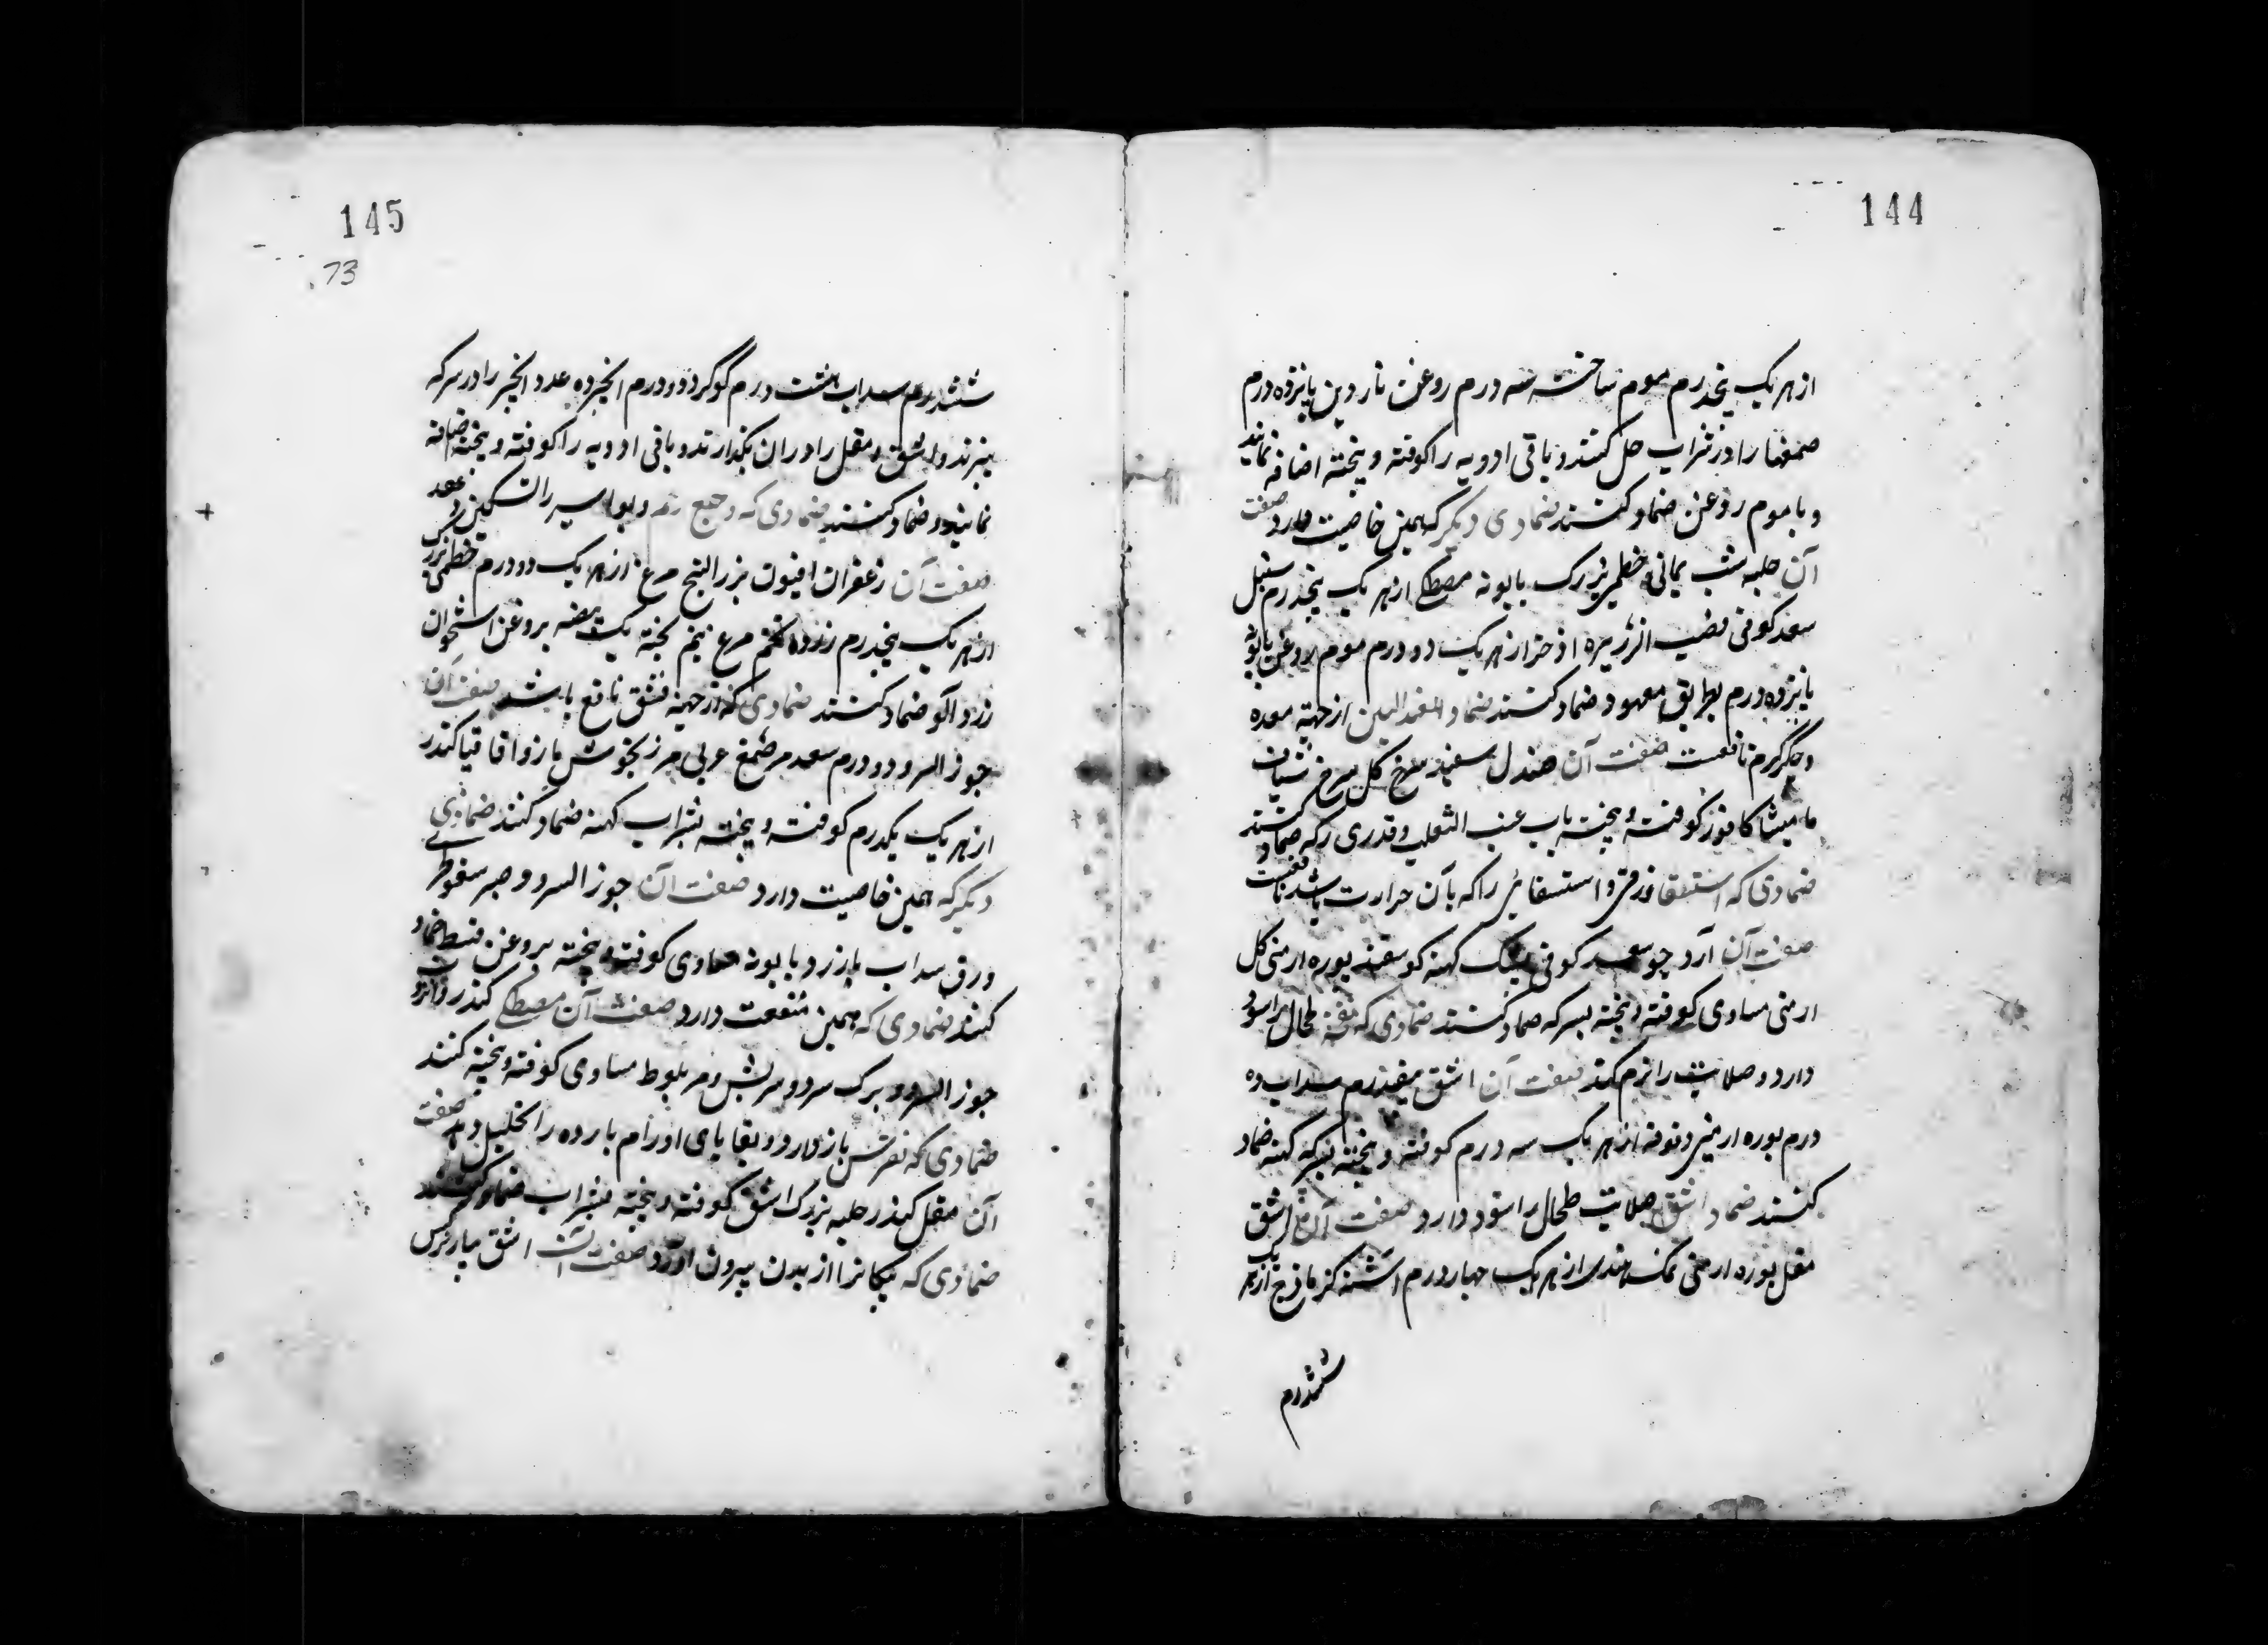 144
از هر یک پنجدرم موم ساخته سه درم روغن ناردین پانزده درم
صمغها را در شراب حل کنند و باقی ادویه را کوفته و بیخته اضافه نمایند
و با موم روغن ضماد کنند ضمادی دیگر که همین خاصیت دارد صفت
آن حلبه شب یمانی خطمی بزرک بابونه مصطکی از هر یک پنجدرم سنبل
سعد کوفی قصب الزریره اذخر از هر یک دو درم موم روغن بابونه
پانزده درم بطریق معهود ضماد کنند ضماد از جهة معده
و جکر کرم نافعست صفت آن صندل سفید سرخ کل سرخ شیاف
مامیثا کافور کوفته و بیخته بآب عنب الثعلب و قدری سرکه ضماد کنند
ضمادی که استسقا زقی و استسقائی را که با آن حرارت باشد نافعست
صفت آن آرد جو سعد کوفی پشک کهنه کوسفند بوره ارمنی کل
ارمنی مساوی کوفته و بیخته بسرکه ضماد کنند ضمادی که طحال را سود
دارد و صلابت را نرم کند صفت آن اشق هفتدرم سداب ده
درم بوره ارمنی از هر یک سه درم کوفته و بیخته بسرکه کهنه ضماد
کنند ضماد اشق صلابت طحال را سود دارد صفت آن اشق
مقل بوره ارمنی نمک هندی از هر یک چهار درم اشنه کزمازج از هر یک
ششدرم
145
73
ششدرم سداب هشت درم کوکرد دو درم انجیر ده عدد انجیر را در سرکه
بپزند و اشق و مقل را در ان بکدازند و باقی ادویه را کوفته و بیخته اضافه
نمایند و ضماد کنند ضمادی که وجع و بواسیر را تسکین دهد
صفت آن زعفران افیون بزر البنج از هر یک دو درم خطمی
از هر یک پنجدرم زرده تخم مرغ نیم پخته یک بیضه بروغن استخوان
زرد آلو ضماد کنند ضمادی که از جهة فتق نافع باشد صفت آن
جوز السرو دو درم سعد مر صمغ عربی مرزنجوش مازو اقاقیا کندر
از هر یک یکدرم کوفته و بیخته بشراب کهنه ضماد کنند ضمادی
دیکر که همین خاصیت دارد صفت آن جوز السرو و صبر سقوطری
ورق سداب بابونه مساوی کوفته و بیخته بروغن قسط ضماد
کنند ضمادی که همین منفعت دارد صفت آن مصطکی کندر
جوز السرو و برک سرو سریش و مر بلوط مساوی کوفته و بیخته کنند
ضمادی که نقرس باز دارد و بقایای اورام بارده را تحلیل دهد صفت
آن مقل کندر حلبه بزرک اشق کوفته و بیخته بشراب ضماد کنند
ضمادی که پیکانرا از بدن بیرون آورد صفت آن اشق